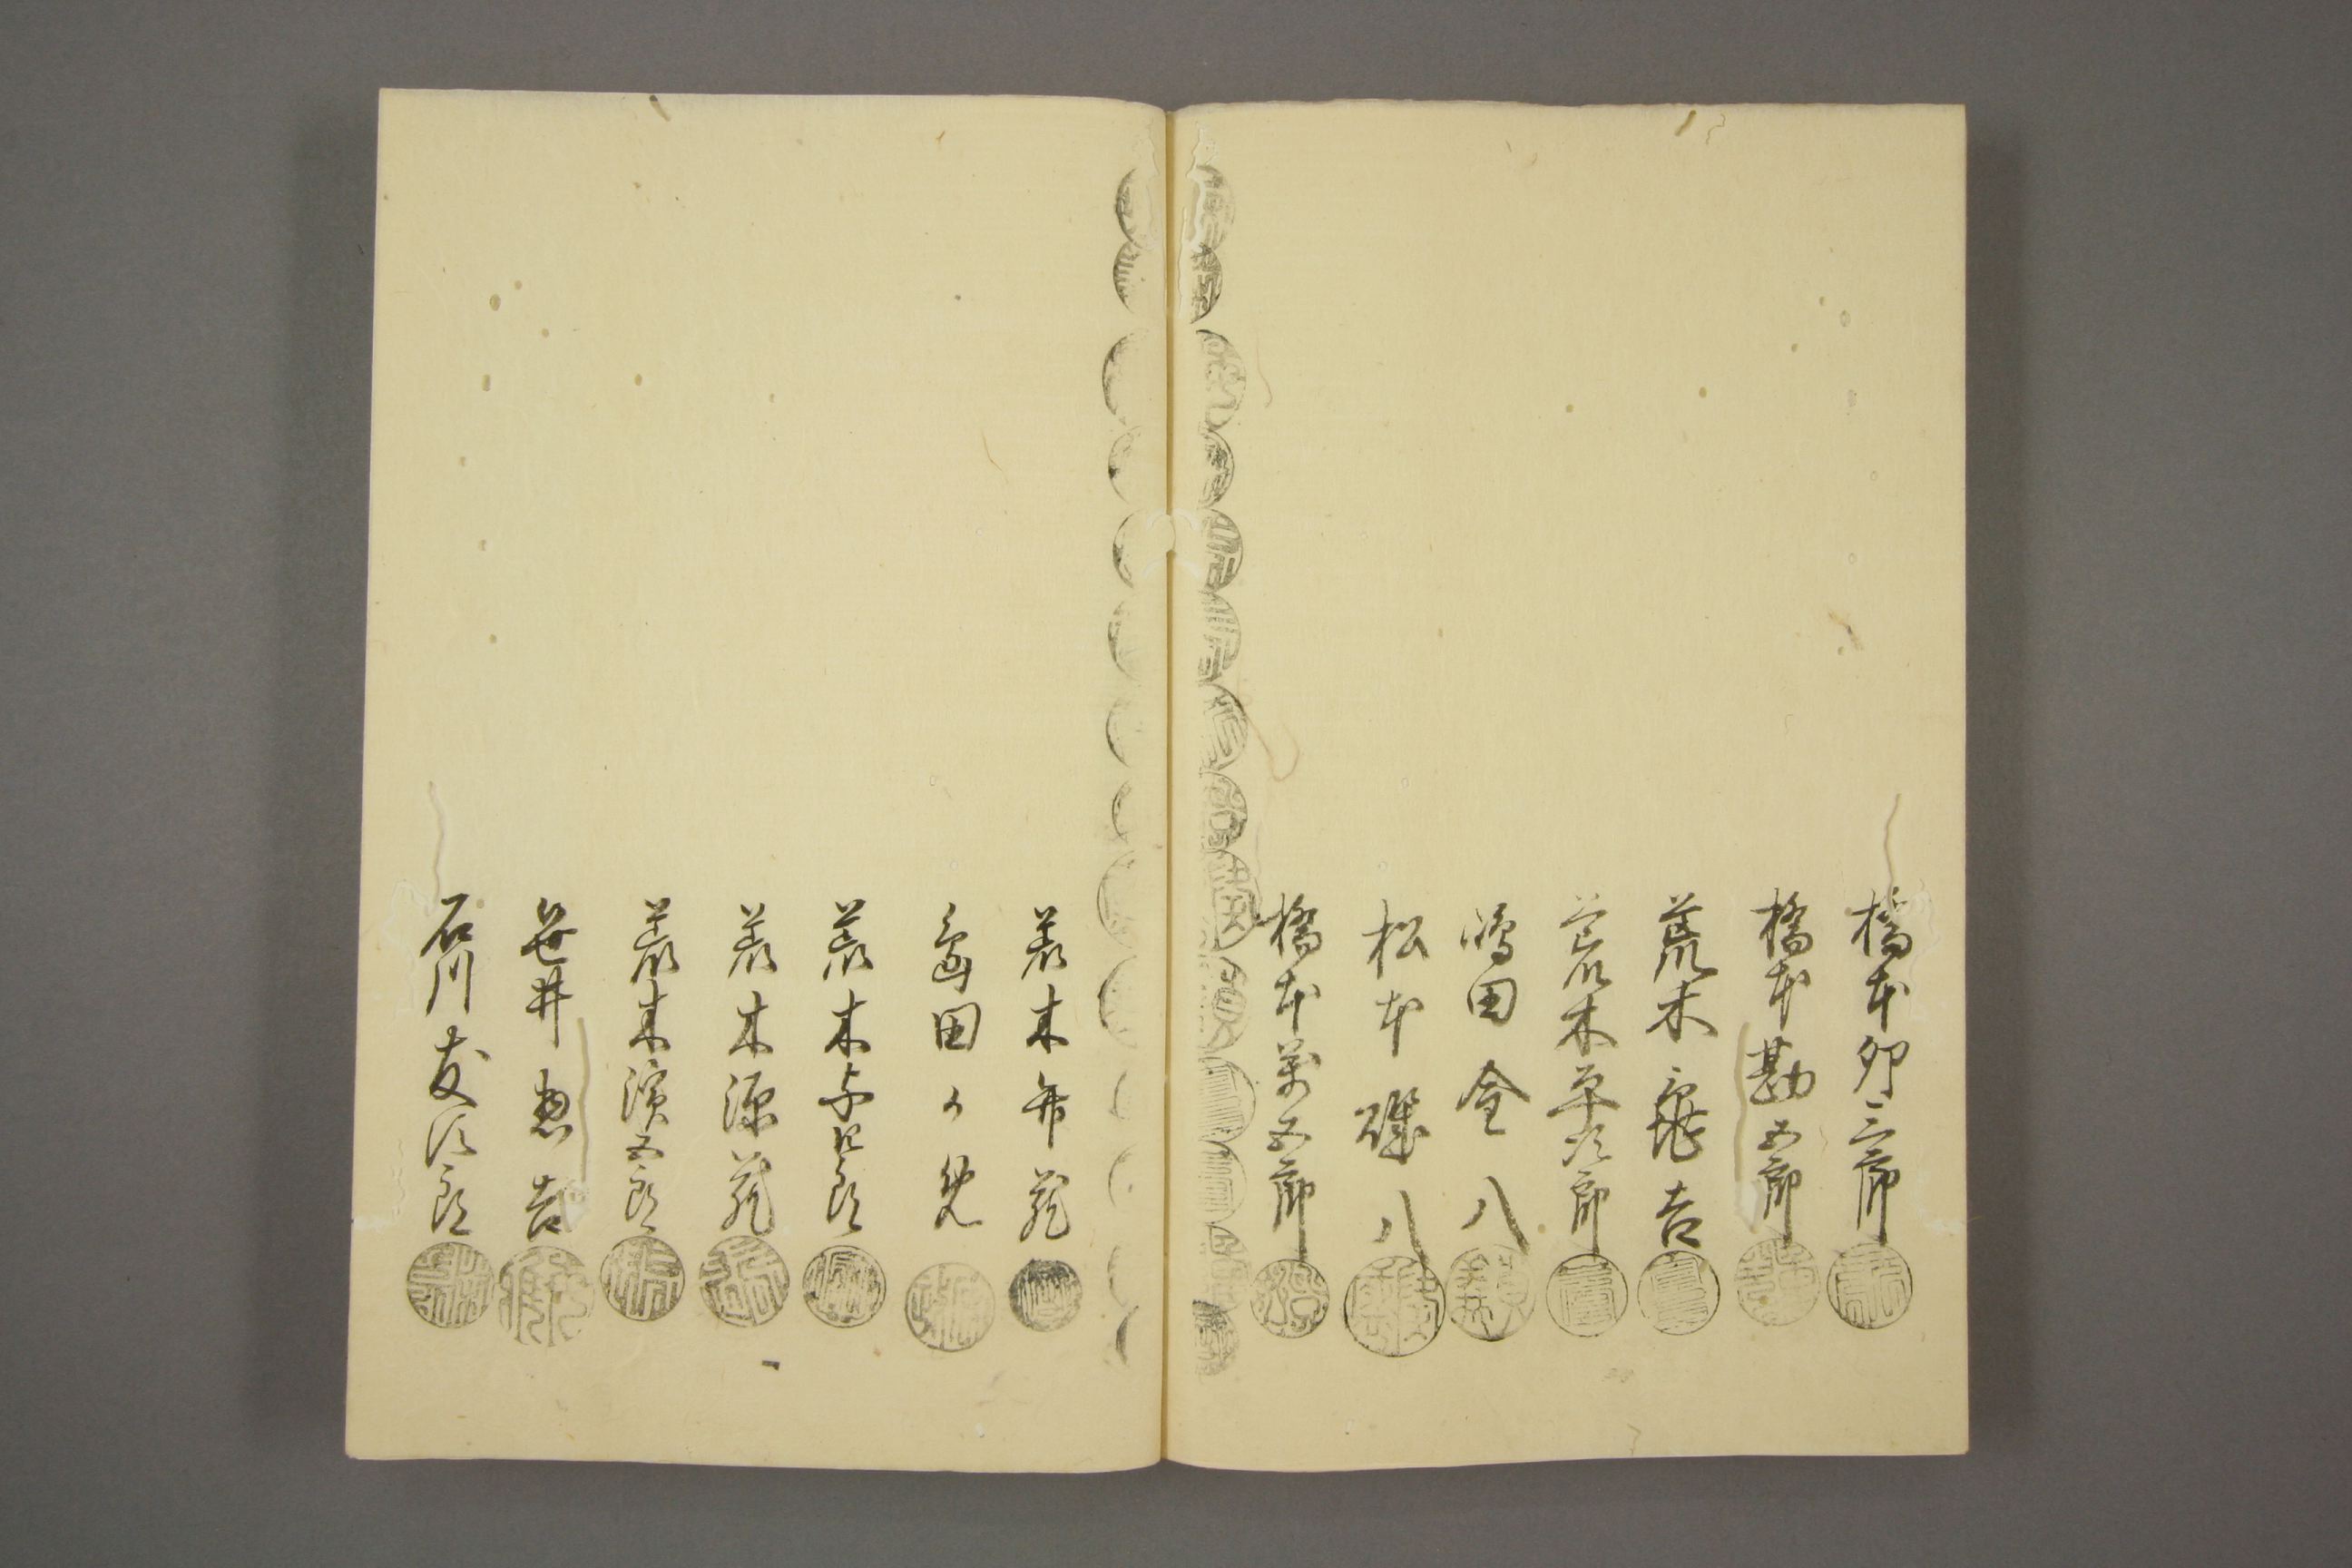 橋本卯三郎
橋本勘五郎
荒木亀吉
荒木平次郎
嶋田金八
松本礒八
橋本萬五郎
荒木弁蔵
島田
荒木与四郎
荒木源蔵
荒木濱五郎
笹井惣吉
石川友次郎